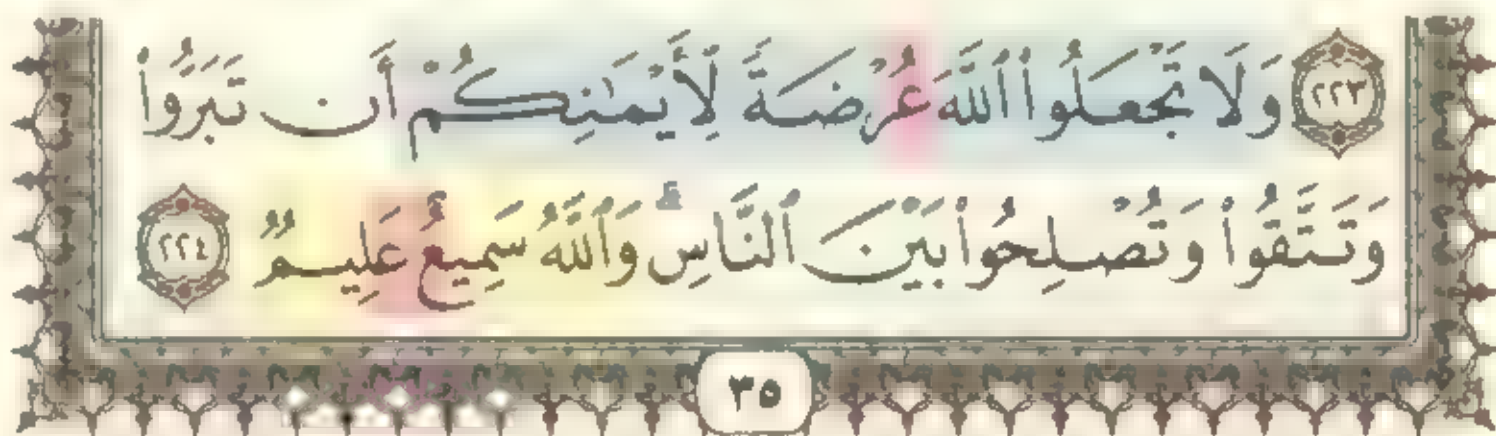 ٢٢٣ وَلَا تَجْعَلُوا۟ ٱللَّهَ عُرْضَةً لِّأَيْمَٰنِكُمْ أَن تَبَرُّوا۟
وَتَتَّقُوا۟ وَتُصْلِحُوا۟ بَيْنَ ٱلنَّاسِ ۗ وَٱللَّهُ سَمِيعٌ عَلِيمٌ ٢٢٤
٣٥